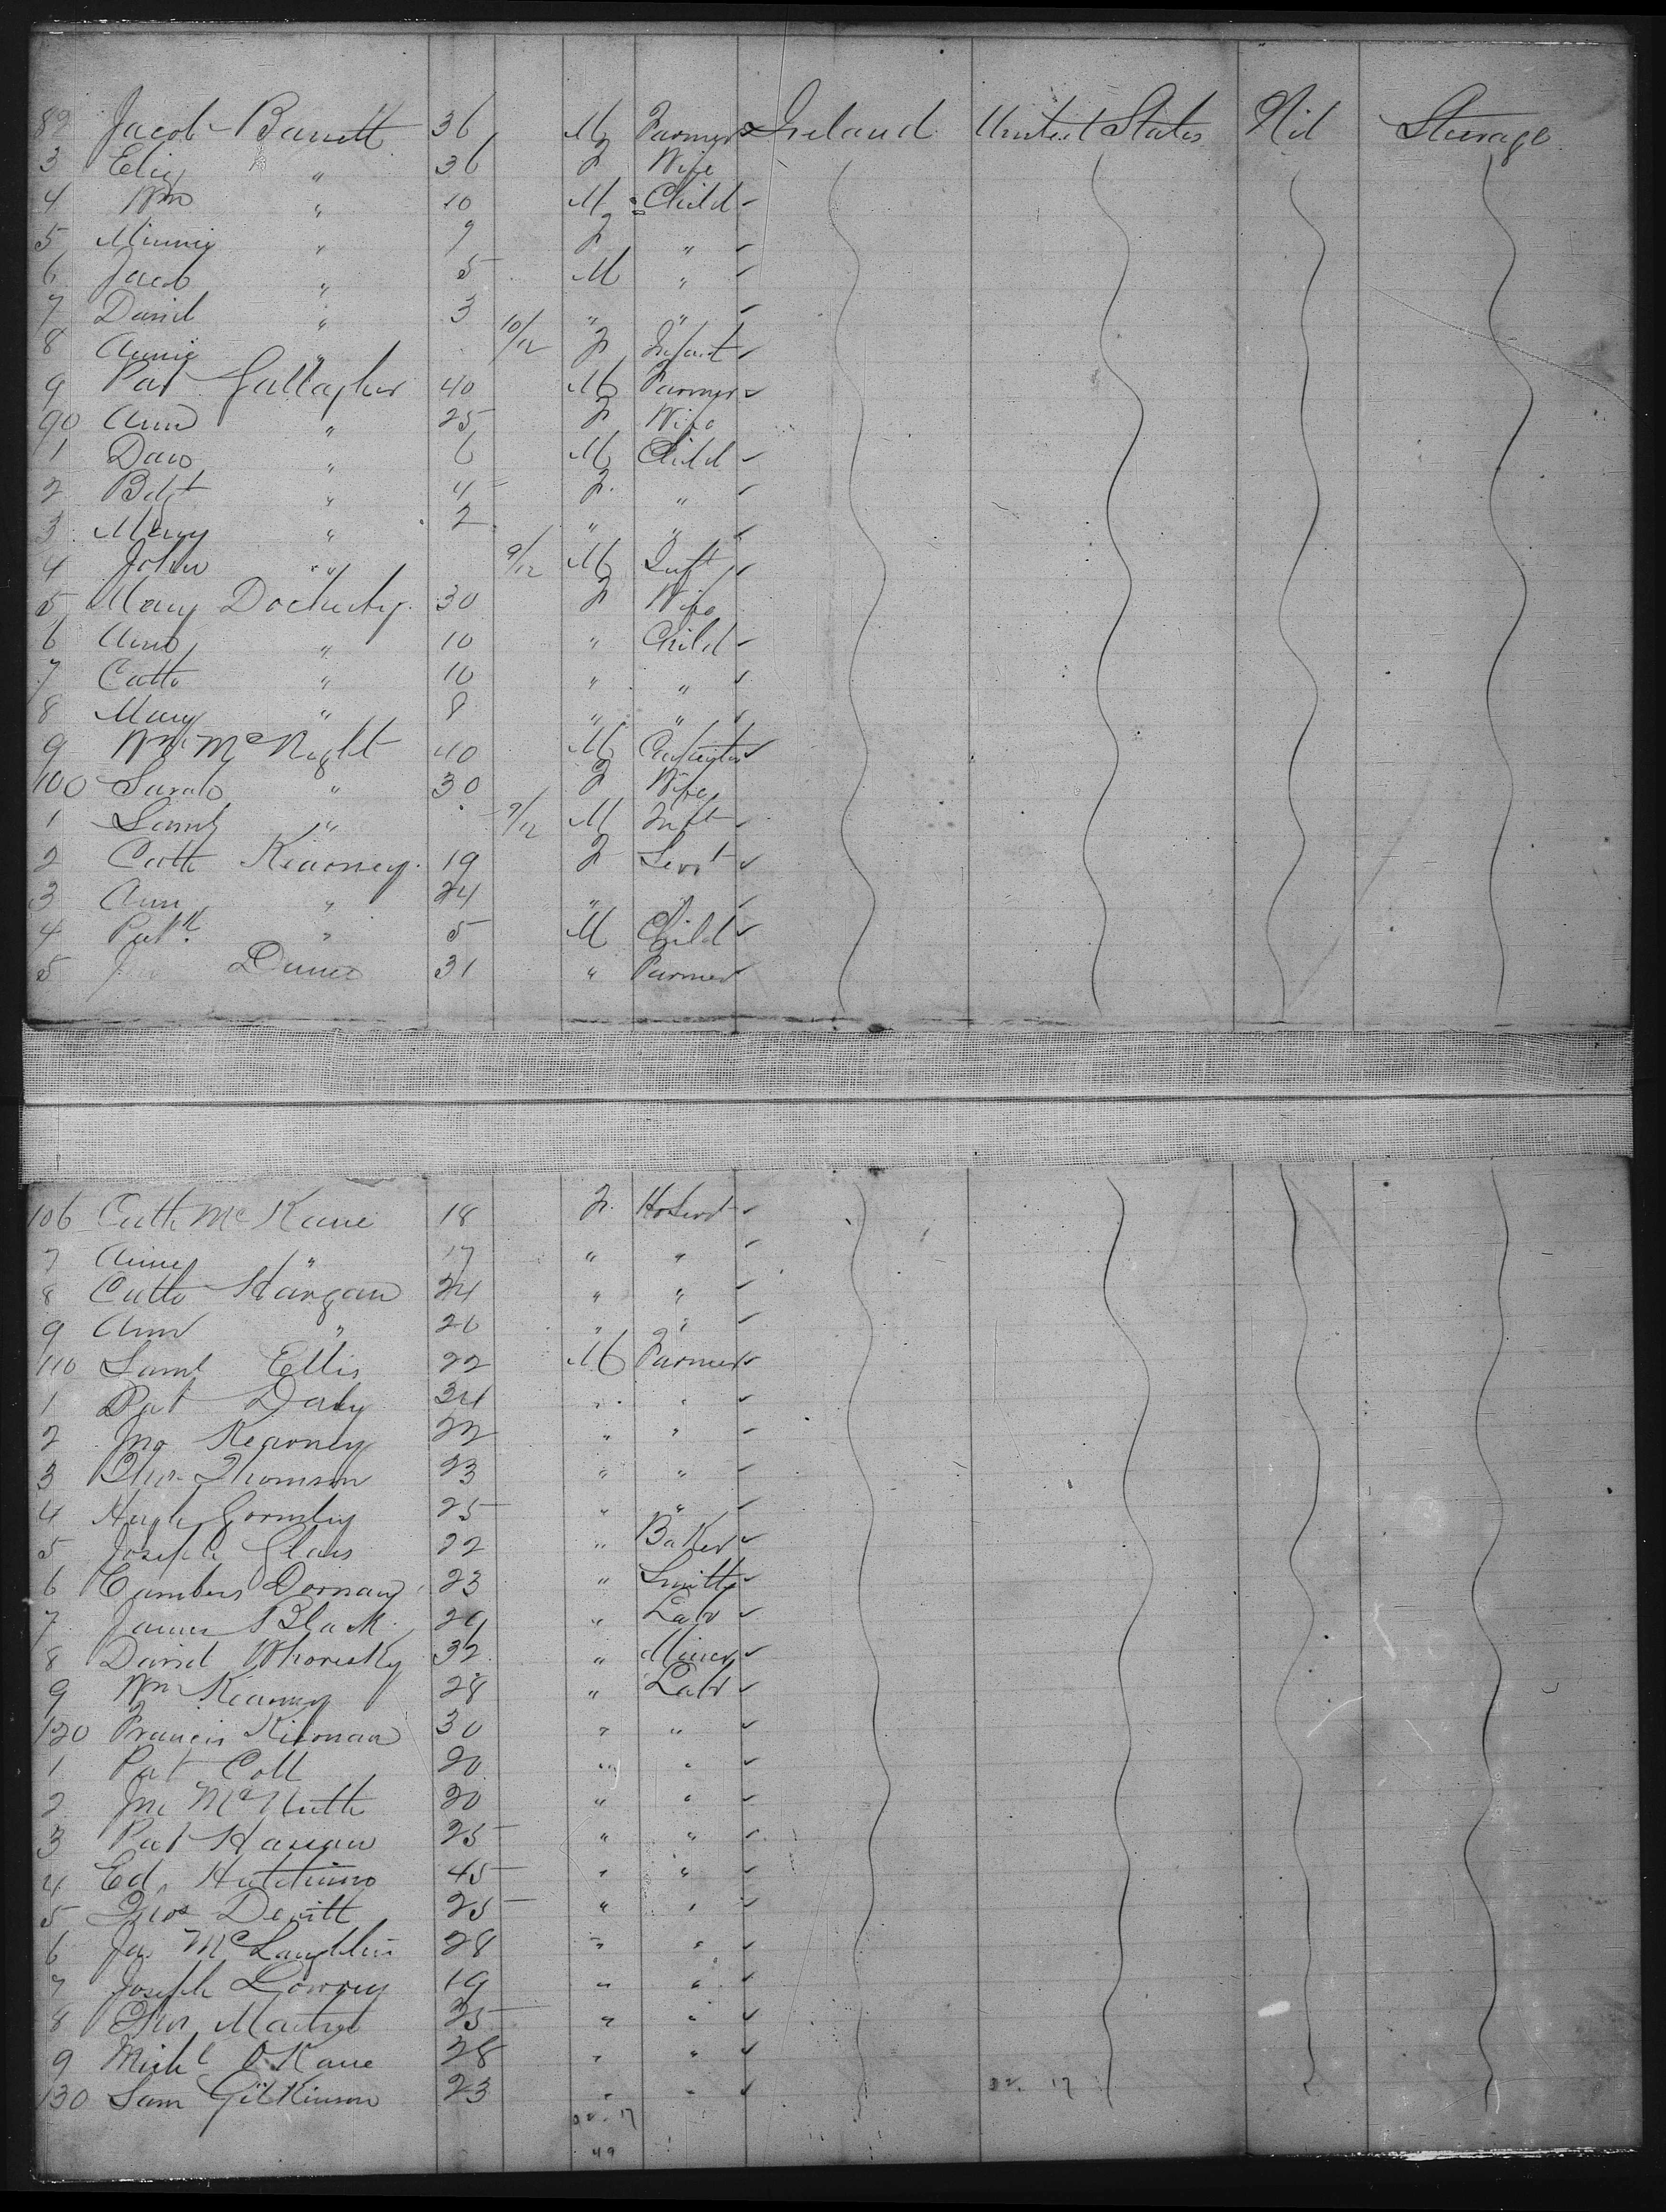 82 Jacob Barrett 36 M Farmer Ireland United States Nil Steerage
3 Eliz " 36 F Wife
4 Wm " 10 M Child
5 Minnie " 9 F "
6 Jacob " 5 M "
7 David " 3 " "
8 Annie " 10/12 F Infant
9 Pat Gallagher 40 M Farmer
90 Ann " 25 F Wife
1 Danl " 6 M Child
2 Bdgt " 4 F "
3 Mary " 2 " "
4 John " 9/12 M Inft
5 Mary Docherty 30 F Wife
6 Ann " 10 " Child
7 Cath " 10 " "
8 Mary " 8 " "
9 Wm McNight 40 M Carpenter
100 Sarah " 30 F Wife
1 Saml " 9/12 M Inft
2 Cath Kearney 19 F Servt
3 Ann " 24 " "
4 Patk " 5 M Child
5 Dunne 31 " Farmer
106 Cath McKane 18 F HoServt
7 Anne " 17 " "
8 Cath Hargan 24 " "
9 Ann " 26 " "
110 Saml Ellis 22 M Farmer
1 Pat Daly 34 " "
2 Jno Kearney 22 " "
3 Thomson 23 " "
4 Hugh Gormley 25 " "
5 Joseph Glass 22 " Baker
6 Dornan 23 " Smith
7 James Black 29 " Labr
8 David Whoriskey 32 " Miner
9 Wm Kearney 28 " Labr
120 Francis Kilonan 30 " "
1 Pat Coll 20 " "
2 Jno McNutt 20 " "
3 Pat Hassan 25 " "
4 Ed. 45 " "
5 Thos Devitt 25 " "
6 Jas McLaughlin 28 " "
7 Joseph Lowry 19 " "
8 25 " "
9 Michl O'Kane 28 " "
130 Sam Gilkinson 23 " "
17
17
49